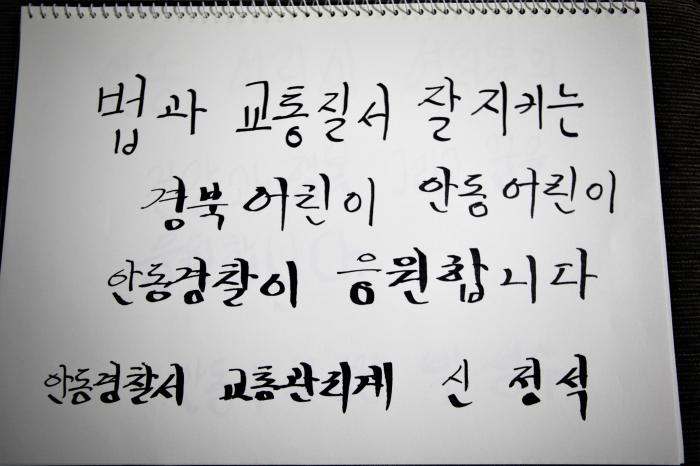 법과 교통질서 잘 지키는
경북어린이 안동어린이
안동경찰이 응원합니다
안동경찰서 교통관리계 신정석